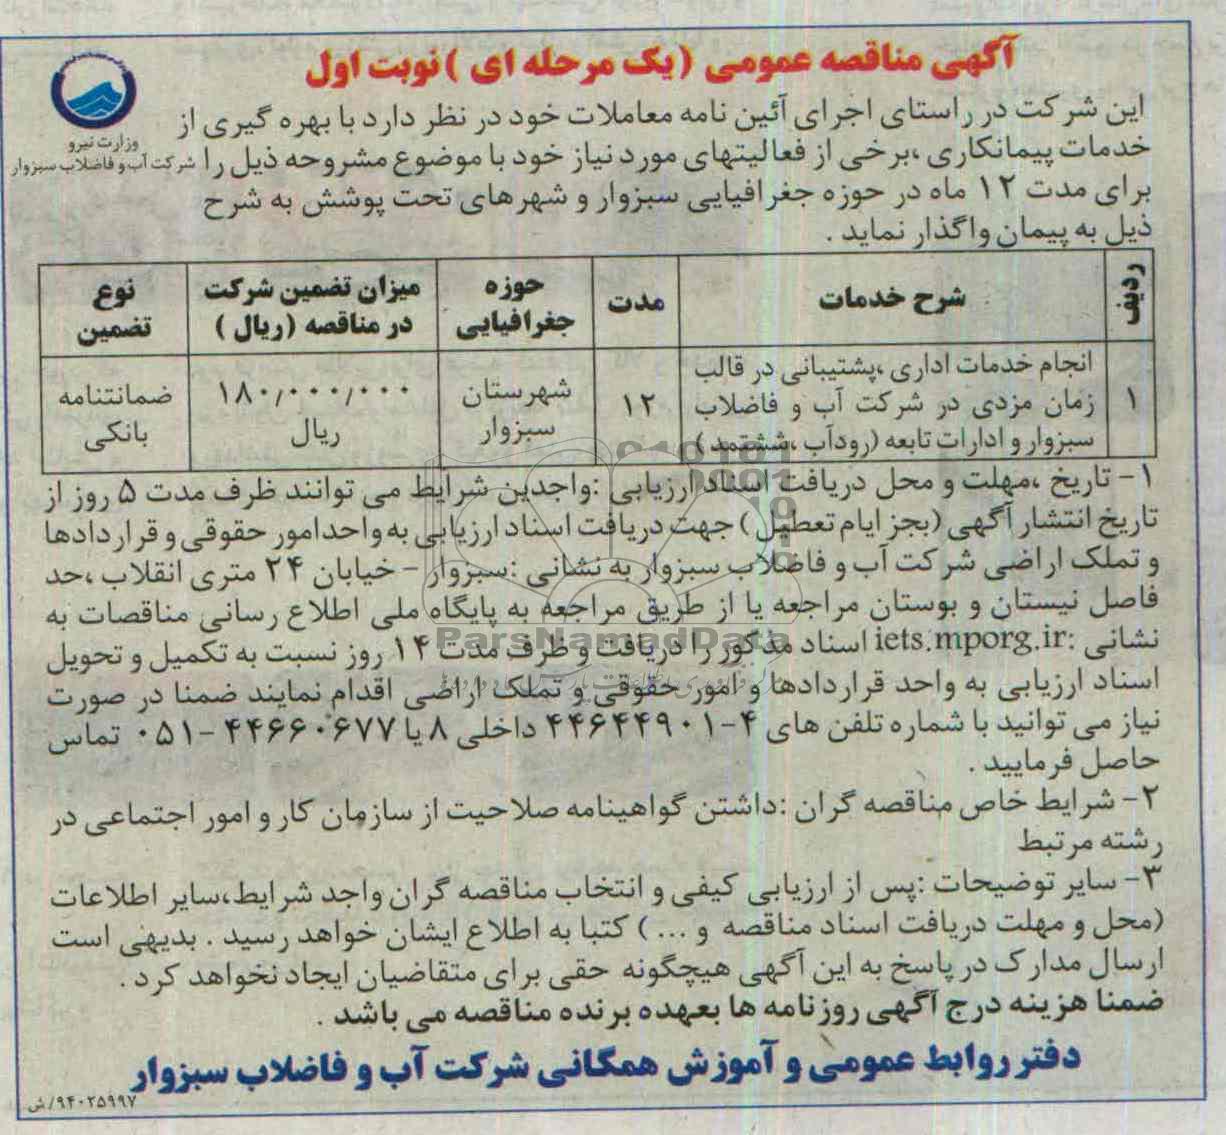 آگهی مناقصه عمومی (یک مرحله ای) نوبت اول
وزارت نیرو
شرکت آب و فاضلاب سبزوار
این شرکت در راستای اجرای آئین نامه معاملات خود در نظر دارد با بهره گیری از
خدمات پیمانکاری ،برخی از فعالیتهای مورد نیاز خود با موضوع مشروحه ذیل را
برای مدت ۱۲ ماه در حوزه جغرافیایی سبزوار و شهرهای تحت پوشش به شرح
ذیل به پیمان واگذار نماید .
ردیف | شرح خدمات | مدت | حوزه جغرافیایی | میزان تضمین شرکت در مناقصه (ریال ) | نوع تضمین
۱ | انجام خدمات اداری ،پشتیبانی در قالب زمان مزدی در شرکت آب و فاضلاب سبزوار و ادارات تابعه (رودآب ،ششتمد ) | ۱۲ | شهرستان سبزوار | ۱۸۰/۰۰۰/۰۰۰ ریال | ضمانتنامه بانکی
۱- تاریخ ،مهلت و محل دریافت اسناد ارزیابی :واجدین شرایط می توانند ظرف مدت ۵ روز از
تاریخ انتشار آگهی (بجز ایام تعطیل ) جهت دریافت اسناد ارزیابی به واحد امور حقوقی و قراردادها
و تملک اراضی شرکت آب و فاضلاب سبزوار به نشانی :سبزوار - خیابان ۲۴ متری انقلاب ،حد
فاصل نیستان و بوستان مراجعه یا از طریق مراجعه به پایگاه ملی اطلاع رسانی مناقصات به
نشانی :iets.mporg.ir اسناد مذکور را دریافت و ظرف مدت ۱۴ روز نسبت به تکمیل و تحویل
اسناد ارزیابی به واحد قراردادها و امور حقوقی و تملک اراضی اقدام نمایند ضمنا در صورت
نیاز می توانید با شماره تلفن های ۴-۴۴۶۴۴۹۰۱ داخلی ۸ یا ۴۴۶۶۰۶۷۷ -۰۵۱ تماس
حاصل فرمایید .
۲- شرایط خاص مناقصه گران :داشتن گواهینامه صلاحیت از سازمان کار و امور اجتماعی در
رشته مرتبط
۳- سایر توضیحات :پس از ارزیابی کیفی و انتخاب مناقصه گران واجد شرایط،سایر اطلاعات
(محل و مهلت دریافت اسناد مناقصه و ... ) کتبا به اطلاع ایشان خواهد رسید . بدیهی است
ارسال مدارک در پاسخ به این آگهی هیچگونه حقی برای متقاضیان ایجاد نخواهد کرد .
ضمنا هزینه درج آگهی روزنامه ها بعهده برنده مناقصه می باشد .
دفتر روابط عمومی و آموزش همگانی شرکت آب و فاضلاب سبزوار
۹۴۰۲۵۹۹۷/ش
ParsNamadData